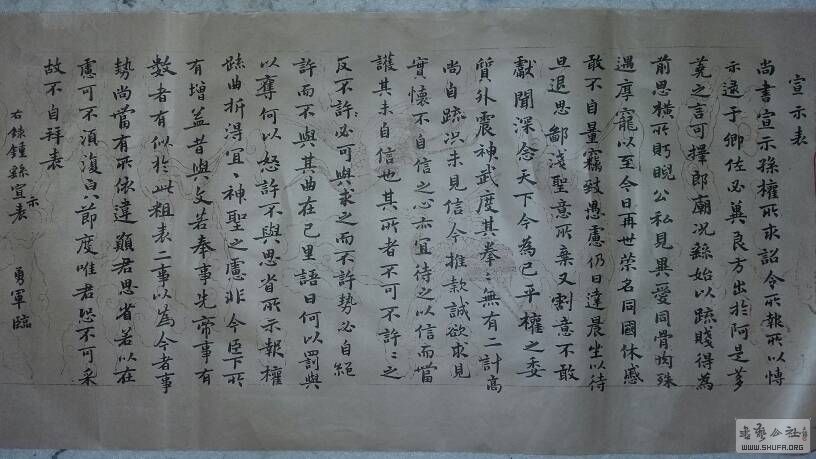 宣示表
尚书宣示孫權所求詔令所報所以博
示逮于卿佐必冀良方出於阿是芻
蕘之言可擇郎廟况繇始以疏賤得為
前思橫所眄睨公私見異愛同骨肉殊
遇厚寵以至今日再世榮名同國休慼
敢不自量竊致愚慮仍日達晨坐以待
旦退思鄙淺聖意所棄又割意不敢
獻聞深念天下今為已平權之委
質外震神武度其拳:無有二計高
尚自疏況未見信今推款誠欲求見
實懷不自信之心亦宜待之以信而當
護其未自信也其所者不可不許:之
反不許:必可與求之而不許勢必自絕
許而不與其曲在己里語曰何以罰與
以奪何以怒許不與思省所示報權
䟽曲折得宜:神聖之慮非今臣下所
有增益昔與文若奉事先帝事有
数者有似於此粗表二事以為今者事
勢尚當有所依違願君思省若以在
慮可不須復白節度唯君恐不可采
故不自拜表
右錄鍾繇宣示表 勇軍臨
书艺公社
WWW.SHUFA.ORG